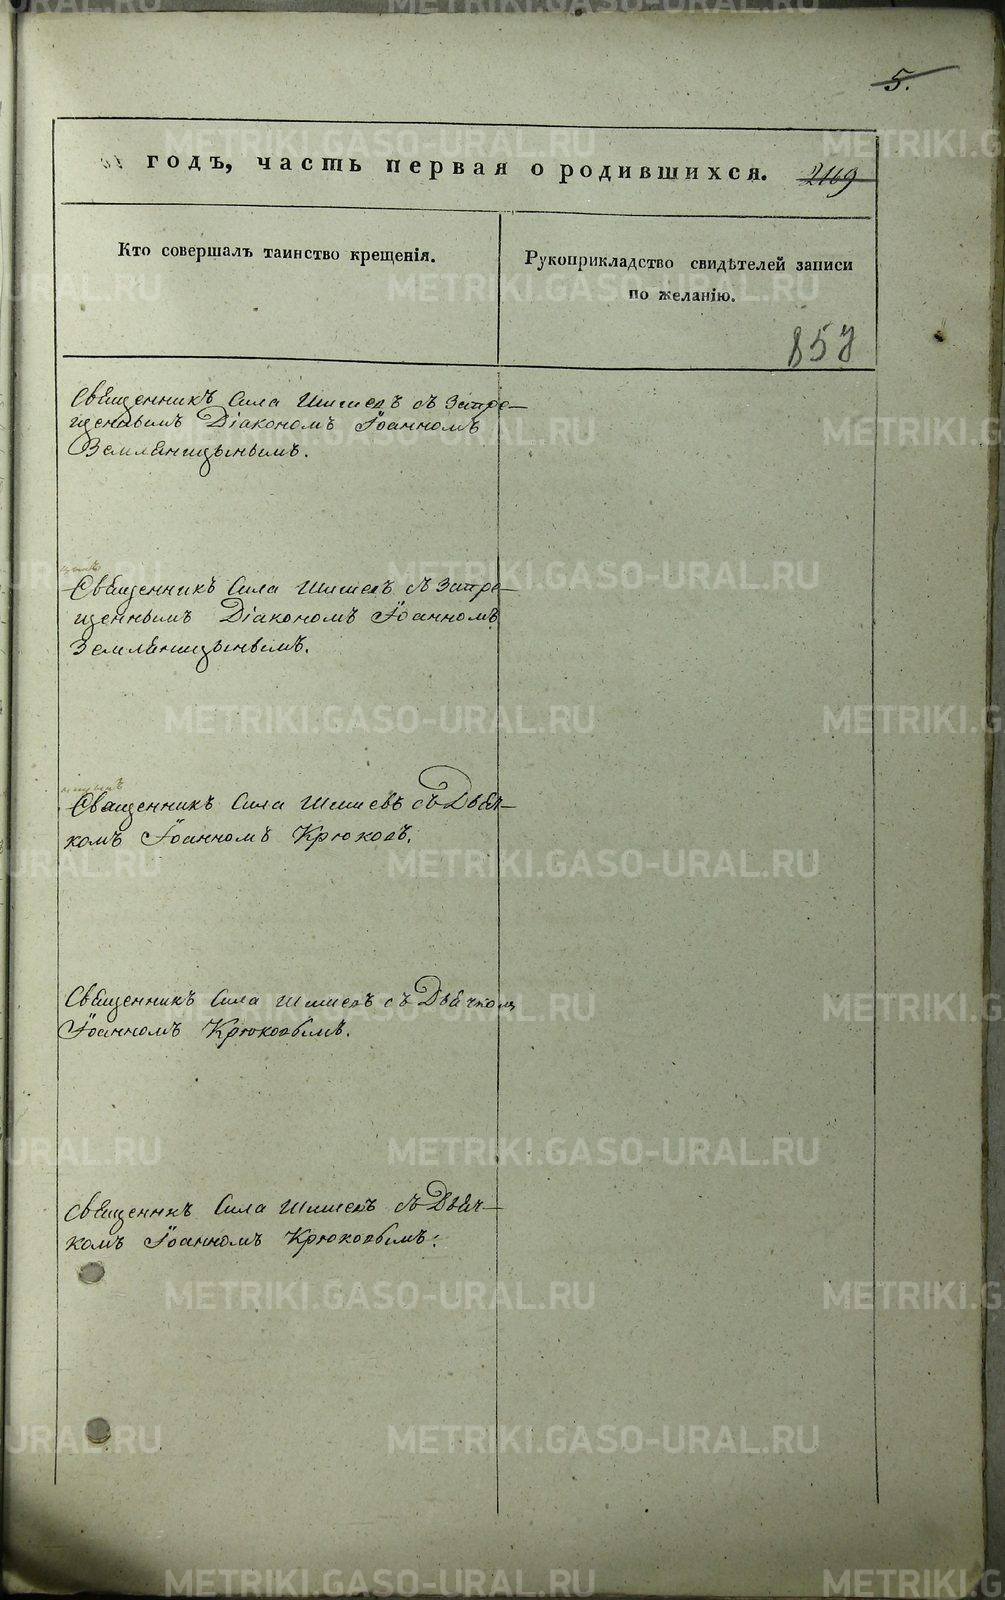 5.
годъ, часть первая о родившихся. 2169
Кто совершалъ таинство крещенія.
Рукоприкладство свидѣтелей записи
по желанію.
857
Священникъ Сила Шишевъ съ Запре-
щеннымъ Діакономъ Іоанномъ
Земляницынымъ.
Священникъ Сила Шишевъ съ Запре-
щеннымъ Діакономъ Іоанномъ
Земляницынымъ.
Священникъ Сила Шишевъ съ Дьяч-
комъ Іоанномъ Крюковъ.
Священникъ Сила Шишевъ съ Дьячкомъ
Іоанномъ Крюковымъ.
Священникъ Сила Шишевъ съ Дьяч-
комъ Іоанномъ Крюковымъ.
METRIKI.GASO-URAL.RU